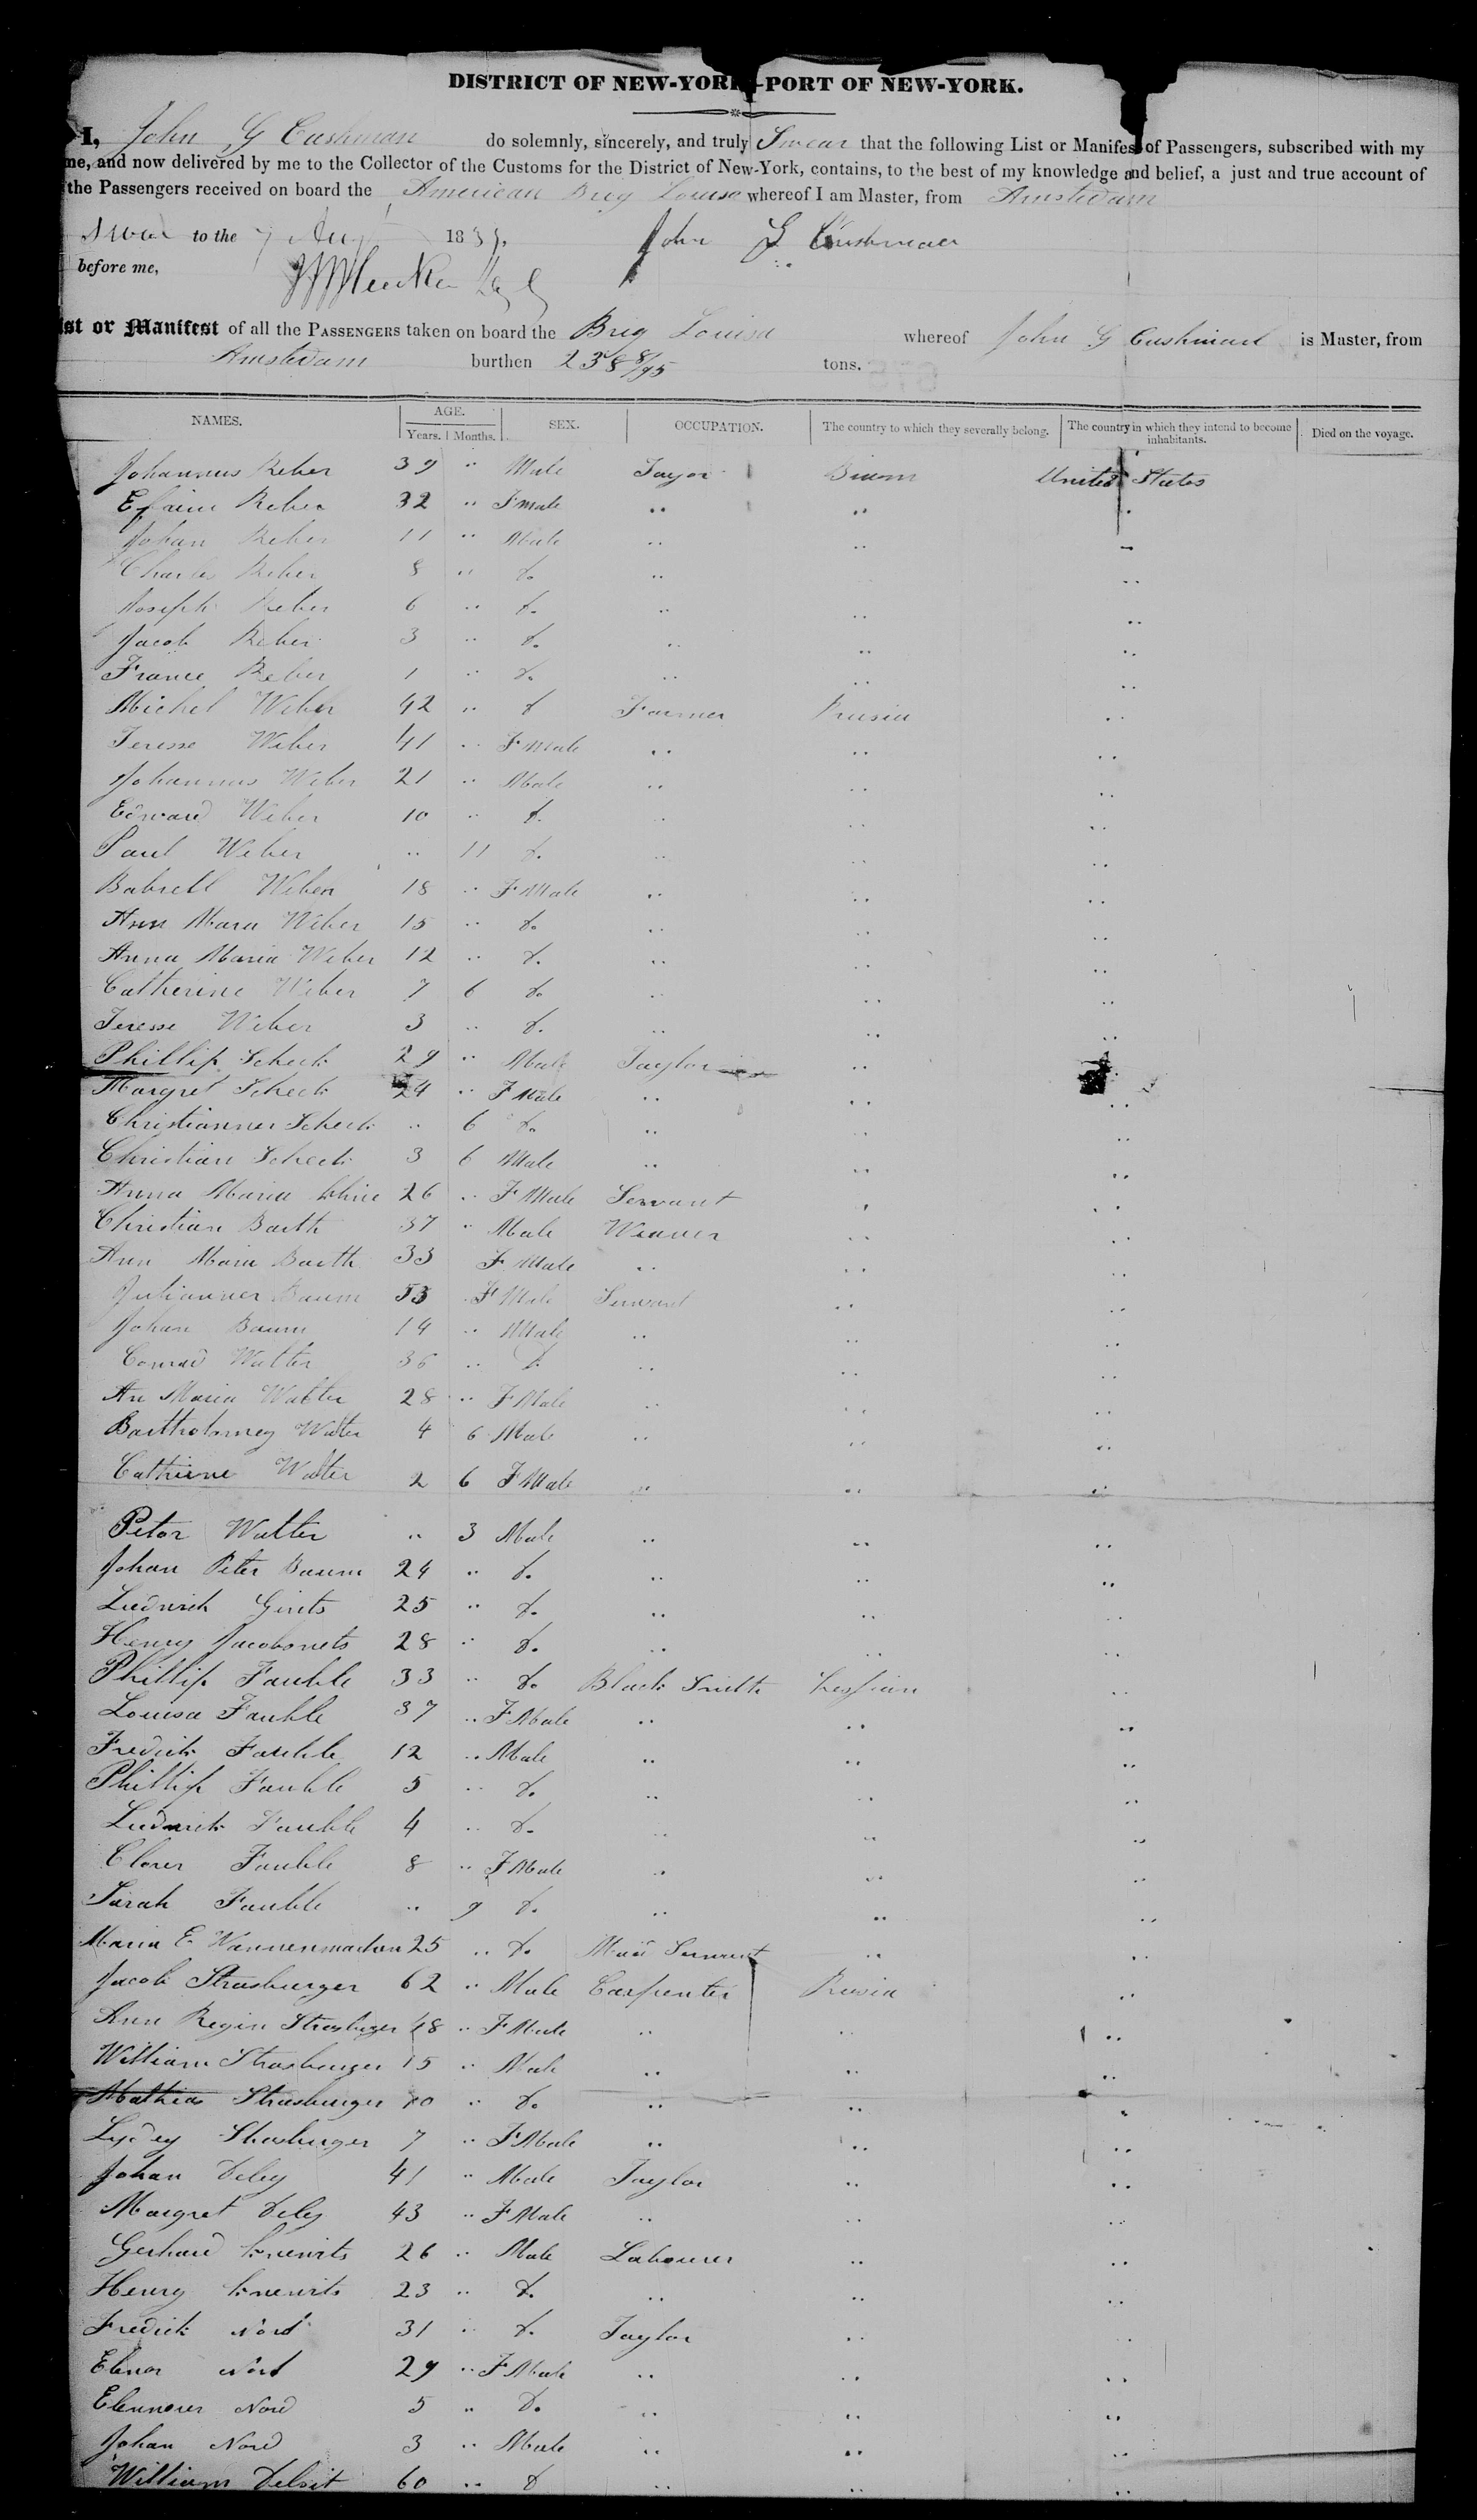 DISTRICT OF NEW-YORK-PORT OF NEW-YORK.
I, John G Cushman do solemnly, sincerely, and truly Swear that the following List or Manifest of Passengers, subscribed with my
me, and now delivered by me to the Collector of the Customs for the District of New-York, contains, to the best of my knowledge and belief, a just and true account of
the Passengers received on board the American Brig Louisa whereof I am Master, from Amsterdam
to the 7 Aug 1839. John G Cushman
before me,
ist or Manifest of all the PASSENGERS taken on board the Brig Louisa whereof John G Cushman is Master, from
Amsterdam burthen 238 8/95 tons.
NAMES. AGE. Years. Months. SEX. OCCUPATION. The country to which they severally belong. The country in which they intend to become inhabitants. Died on the voyage.
Johannus Reber 39 " Male Taylor United States
Reber 32 " Fmale " " "
Johan Reber 11 " Male " " "
Charles Reber 8 " Do " "
Joseph Reber 6 " Do " " "
Jacob Reber 3 " Do " " "
France Reber 1 " Do " " "
Michel Weber 42 " D Farmer Prusia "
Teresse Weber 41 " F Male " " "
Johannus Weber 21 " Male " " "
Edward Weber 10 " D. " " "
Paul Weber " 11 D. " " "
Weber 18 " F Male " " "
Ann Mara Weber 15 " Do " " "
Anna Maria Weber 12 " D. " " "
Catherine Weber 7 6 Do " " "
Teresse Weber 3 " D. " " "
Phillip Scheck 29 " Male Taylor "
Margret Scheck 24 " F Male " " "
Christianner Scheck " 6 Do " " "
Christian Scheck 3 6 Male " " "
Anna Maria 26 " F Male Servant " "
Christian Barth 37 " Male Weaver " "
Ann Maria Barth 33 F Male " " "
Julianner Baum 53 " F Male Servant " "
Johan Baum 14 " Male " " "
Conrad Walter 36 " D. " " "
An Maria Walter 28 " F Male " " "
Bartholomey Walter 4 6 Male " " "
Cathrine Walter 2 6 F Male " " "
Peter Walter " 3 Male " " "
Johan Peter Baum 24 " Do " " "
Ludwick Gints 25 " Do " " "
Henry Jacobsnets 28 " Do " " "
Phillip Fauble 33 " Do Black Smith Hessian "
Louisa Fauble 37 " F Male " " "
Fredick Fauble 12 " Male " " "
Phillip Fauble 5 " Do " " "
Ludwick Fauble 4 " Do " " "
Clorer Fauble 8 " F Male " " "
Sarah Fauble " 9 Do " " "
Maria E Wannenmachan 25 " Do Servant " "
Jacob Strasburger 62 " Male Carpenter Prusia "
Ann Regin Strasburger 48 " F Male " " "
William Strasburger 15 " Male " " "
Mathias Strasburger 10 " Do " " "
Lydey Strasburger 7 " F Male " " "
Johan Deley 41 " Male Taylor " "
Margret Deley 43 " F Male " " "
Gerhard 26 " Male Labourer " "
Henry 23 " D. " " "
Fredick Nord 31 " D. Taylor " "
Elenor Nord 29 " F Male " " "
Elennorer Nord 5 " Do " " "
Johan Nord 3 " Male " " "
William Delsit 60 " D " " "